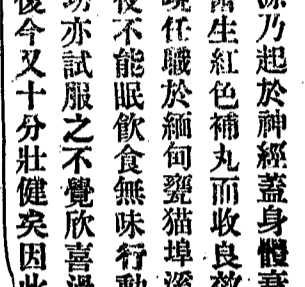 乃起於神經蓋身體
生紅色補丸而收良
任職於緬甸甕貓埠
不能眠飲食無味行動
亦試服之不覺欣喜
後今又十分壯健矣因此